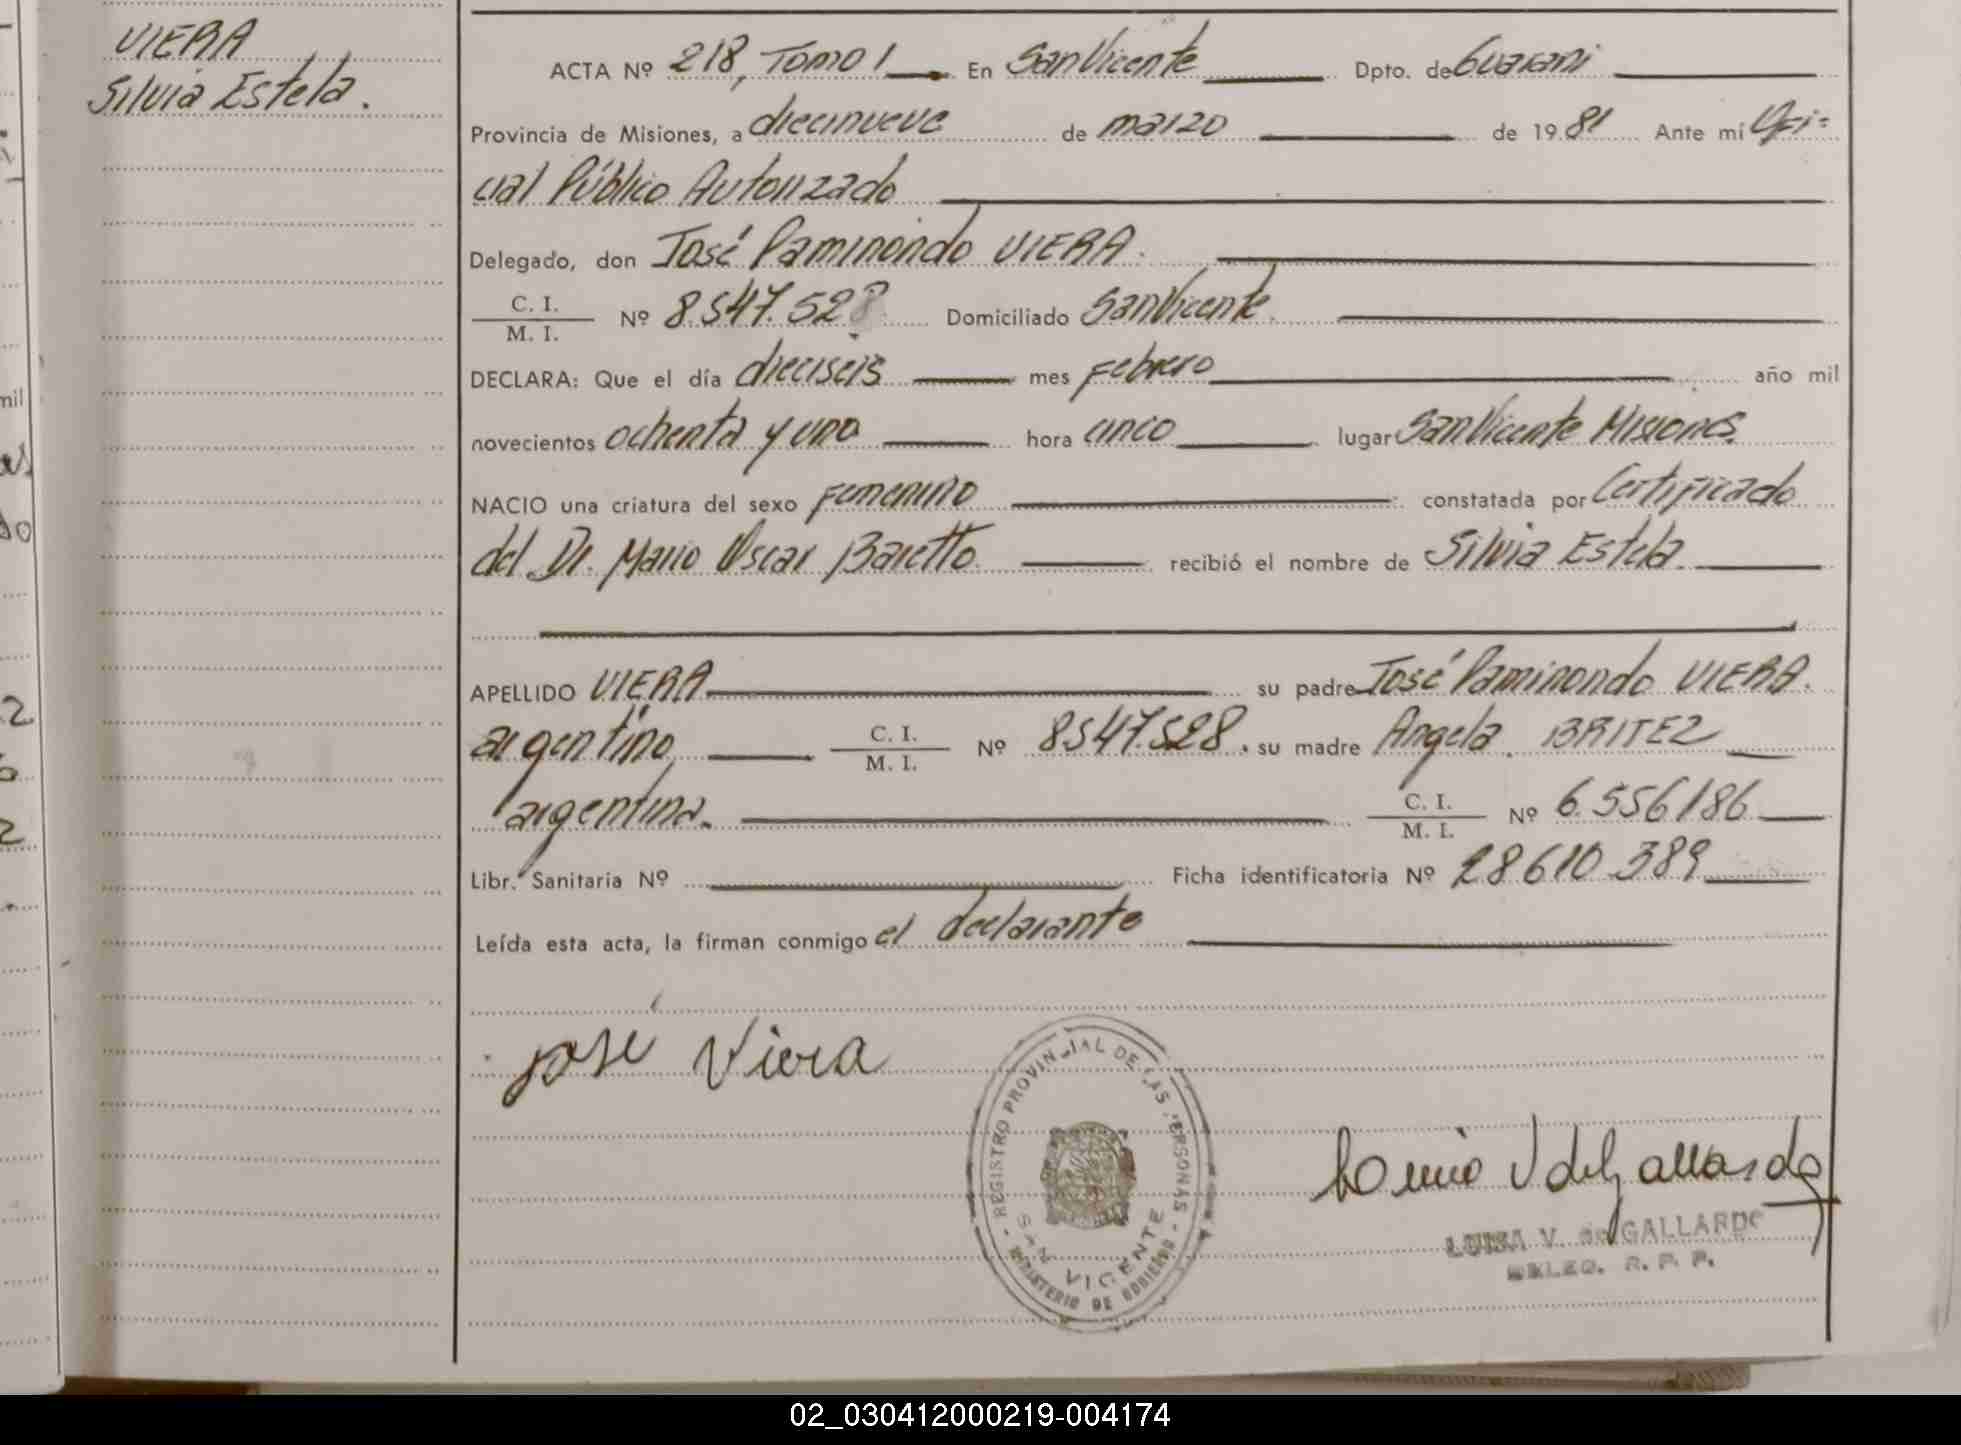 VIERA
Silvia Estela.
ACTA Nº 218, Tomo I En San Vicente Dpto. de Guarani
Provincia de Misiones, a diecinueve de marzo de 1981 Ante mí Ofi=
cial Público Autorizado
Delegado, don José Paminondo VIERA.
C. I.
M. I. Nº 8547.528 Domiciliado San Vicente.
DECLARA: Que el día dieciseis mes Febrero año mil
novecientos ochenta y uno hora cinco lugar San Vicente Misiones.
NACIO una criatura del sexo Femenino constatada por Certificado
del Dr. Mario Oscar Baretto. recibió el nombre de Silvia Estela.
APELLIDO VIERA su padre José Paminondo VIERA.
argentino C. I.
M. I. Nº 8547.528. su madre Angela BRITEZ
argentina. C. I.
M. I. Nº 6.556186
Libr. Sanitaria Nº Ficha identificatoria Nº 28610.389
Leída esta acta, la firman conmigo el declarante
José Viera
REGISTRO PROVINCIAL DE LAS PERSONAS - MINISTERIO DE GOBIERNO -
SAN VICENTE
V de Gallardo
LUISA V. de GALLARDO
DELEG. R. P. P.
02_030412000219-004174